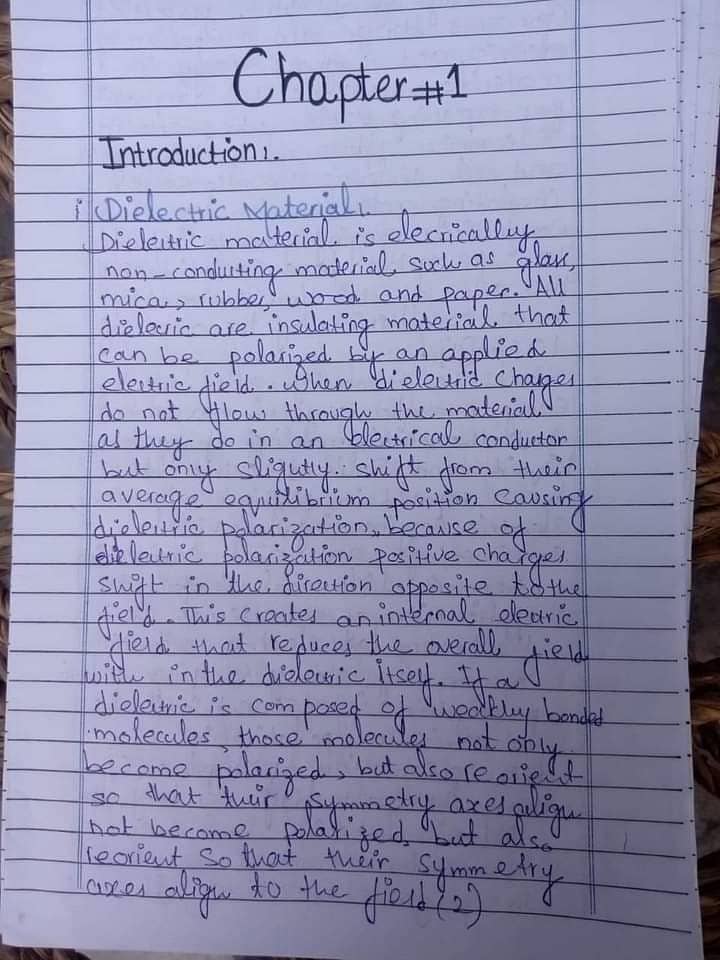 Chapter #1
Introduction:.
i Dielectric Material:
Dieleitric material is elecrically
non-conducting material such as glass,
mica, rubber, wood and paper. All
dielecric are insulating material that
can be polarized by an applied
electric field. when dielectric Charges
do not flow through the material
as they do in an electrical conductor
but only sligutly. shift from their
average equilibrium position causing
dieleitric polarization, because of
dielectric polarization positive charges
shift in the direction opposite to the
field. This creates an internal electric
field that reduces the overall field
with in the dielectric itself. If a
dielectric is composed of weakly bonded
molecules, those molecules not only
become polarized, but also reorient
so that their symmetry axes align
not become polarized, but also
reorient so that their symmetry
axes align to the field (2)